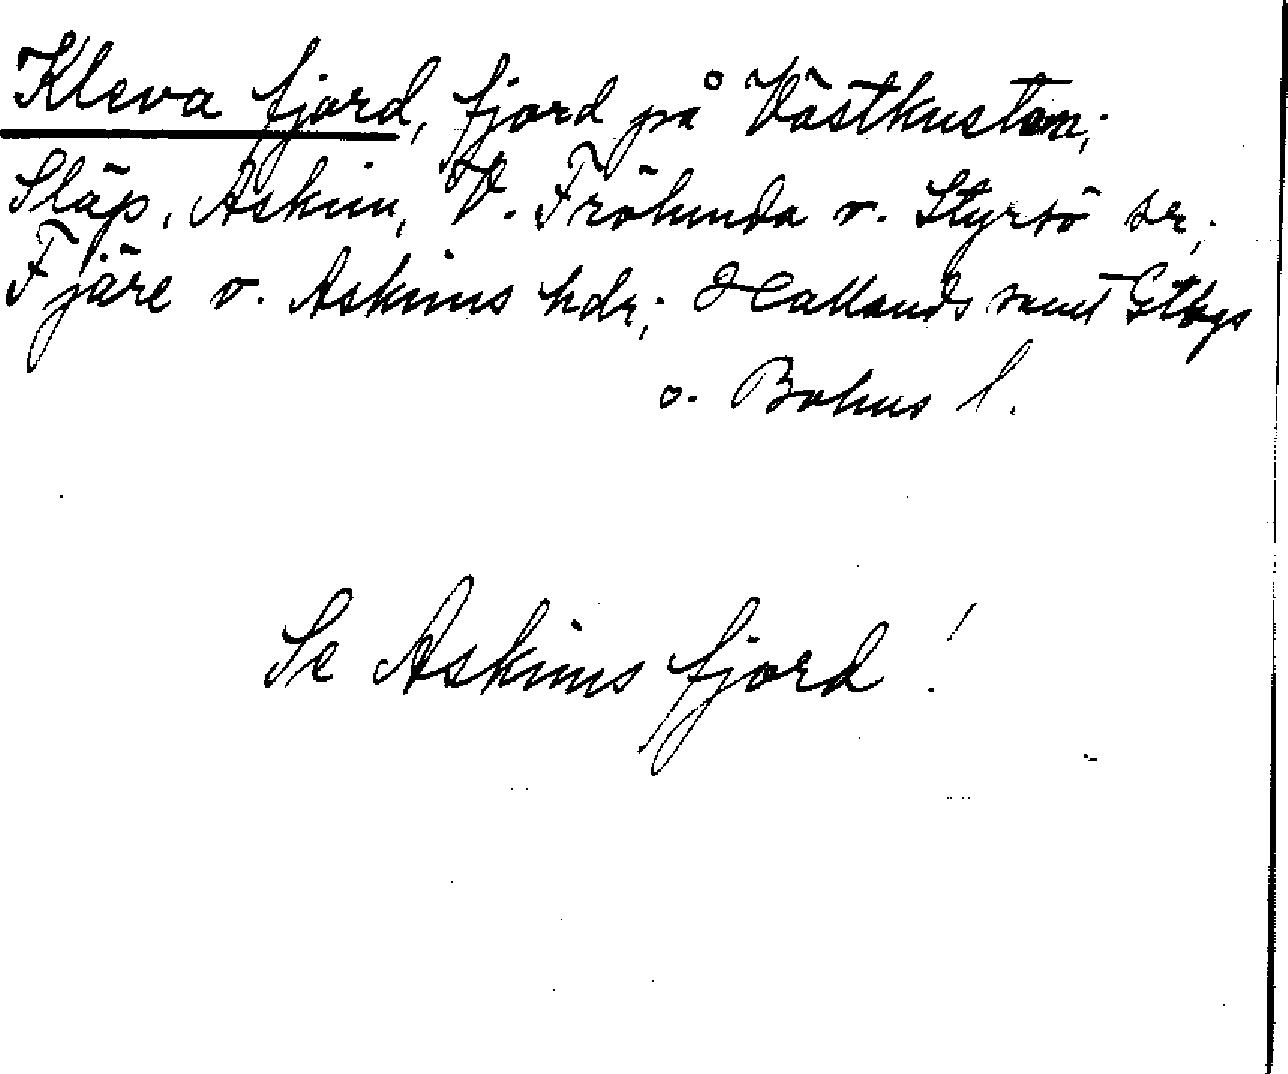 Kleva fjord, fjord på Västkusten;
Släp, Askim, V. Frölunda o. Styrsö sn;
Fjäre o. Askims hdr; Hallands samt Gtbgs
o. Bohus l.
Se Askims fjord!